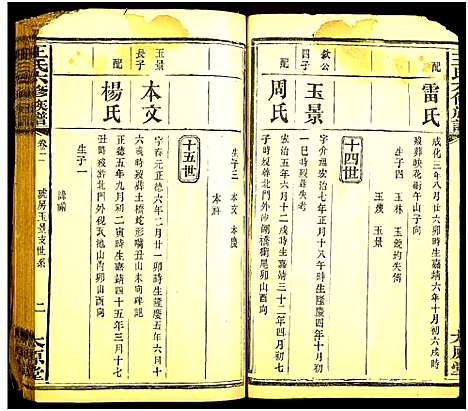 王氏六修族譜
配
雷氏
成化三年八月廿六卯時生嘉靖六年十月初六戌時
歿葬映花樹午山子向
生子四 玉林 玉鏡均失傳
玉璞 玉景
十四世
欽公
四子
玉景
字介元弘治七年正月十八午時生隆慶四年十月十
一巳時歿葬失考
配
周氏
弘治五年六月十二戌時生嘉靖三十二年四月初七
子時歿葬北門外沙
橋街尾卯山酉向
生子二 本文 本慶
本科
十五世
玉景
長子
本文
字
正德六年二月廿一卯時生隆慶五年六月十
六未時歿葬土橋蛇形嘴丑山未向碑記
配
楊氏
正德五年九月初二寅時生嘉靖四十五年三月十七
丑時歿葬北門外
山丙卯山酉向
生子一
諱瀚
王氏六修族譜
卷二
房玉景支世系
二
太原堂
太原堂